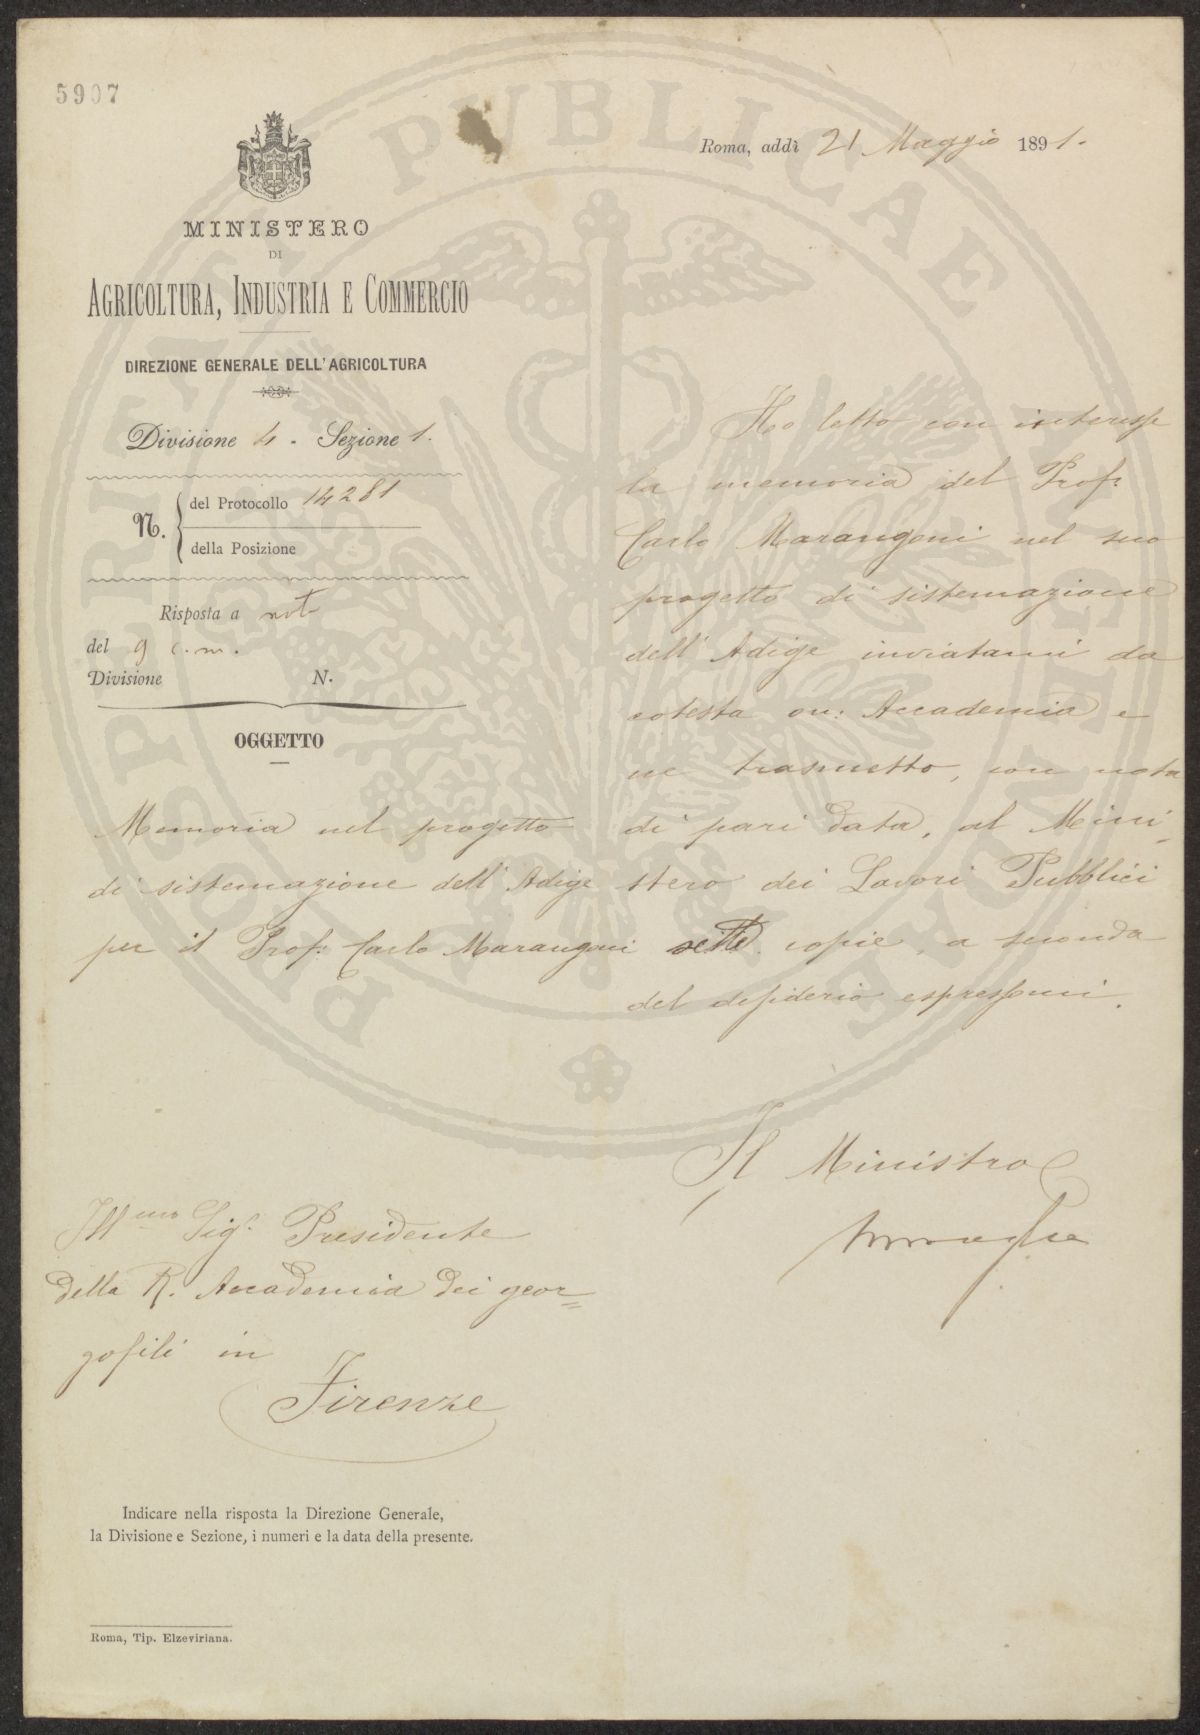 5907
Roma, addì 21 Maggio 1891.
MINISTERO
DI
AGRICOLTURA, INDUSTRIA E COMMERCIO
DIREZIONE GENERALE DELL'AGRICOLTURA
Divisione 4. Sezione 1.
N. del Protocollo 14281
della Posizione
Risposta a nota
del 9 c.m.
Divisione N.
OGGETTO
Memoria nel progetto
di sistemazione dell'Adige
per il Prof: Carlo Marangoni
Ho letto con interesse
la memoria del Prof:
Carlo Marangoni nel suo
progetto di sistemazione
dell'Adige inviatami da
cotesta on: Accademia e
ne trasmetto, con nota
di pari data, al Mini-
stero dei Lavori Pubblici
sette copie, a seconda
del desiderio espressomi.
Il Ministro
Ill.mo Sig.r Presidente
della R. Accademia dei geor=
gofili in
Firenze
Indicare nella risposta la Direzione Generale,
la Divisione e Sezione, i numeri e la data della presente.
Roma, Tip. Elzeviriana.
PROSPERITATI PUBLICAE AUGENDAE